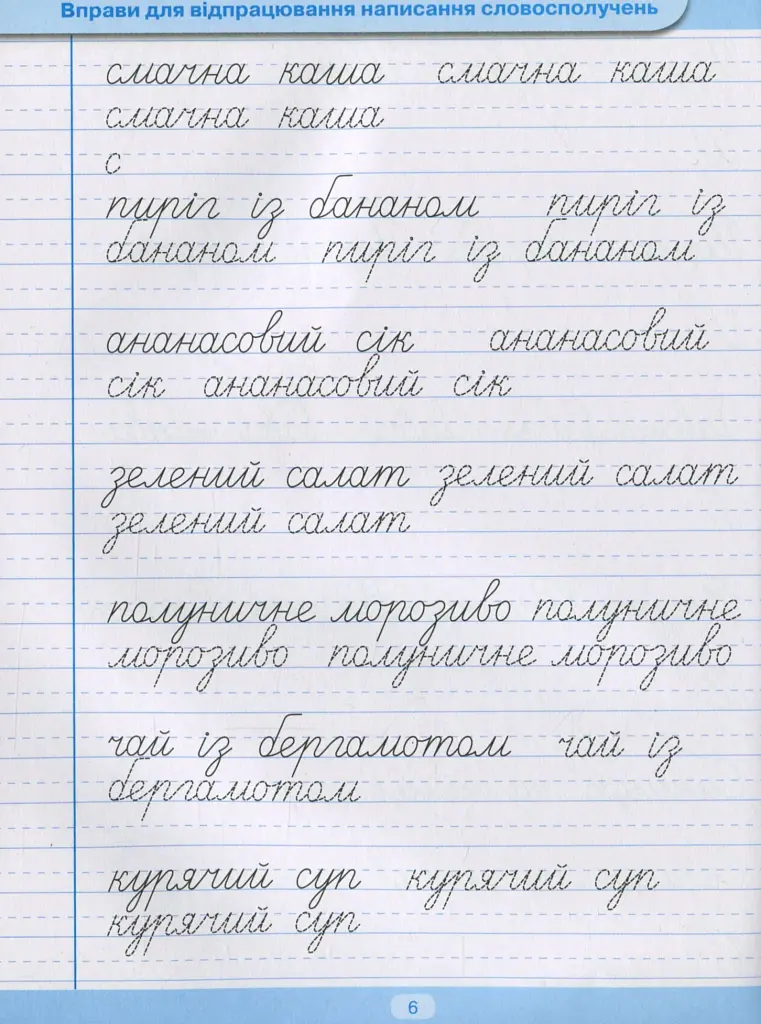 Вправи для відпрацювання написання словосполучень
смачна каша смачна каша
смачна каша
с
пиріг із бананом пиріг із
бананом пиріг із бананом
ананасовий сік ананасовий
сік ананасовий сік
зелений салат зелений салат
зелений салат
полуничне морозиво полуничне
морозиво полуничне морозиво
чай із бергамотом чай із
бергамотом
курячий суп курячий суп
курячий суп
6